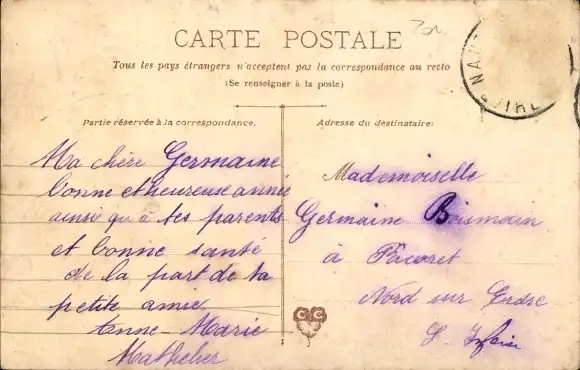 CARTE POSTALE
Tous les pays étrangers n'acceptent pas la correspondance au recto
(Se renseigner à la poste)
Partie réservée à la correspondance.
Ma chère Germaine
bonne et heureuse année
ainsi qu'à tes parents
et bonne santé
de la part de ta
petite amie
Anne-Marie
Adresse du destinataire:
Mademoiselle
Germaine
à
Nord sur Erdre
L. Infér
C C
NANT